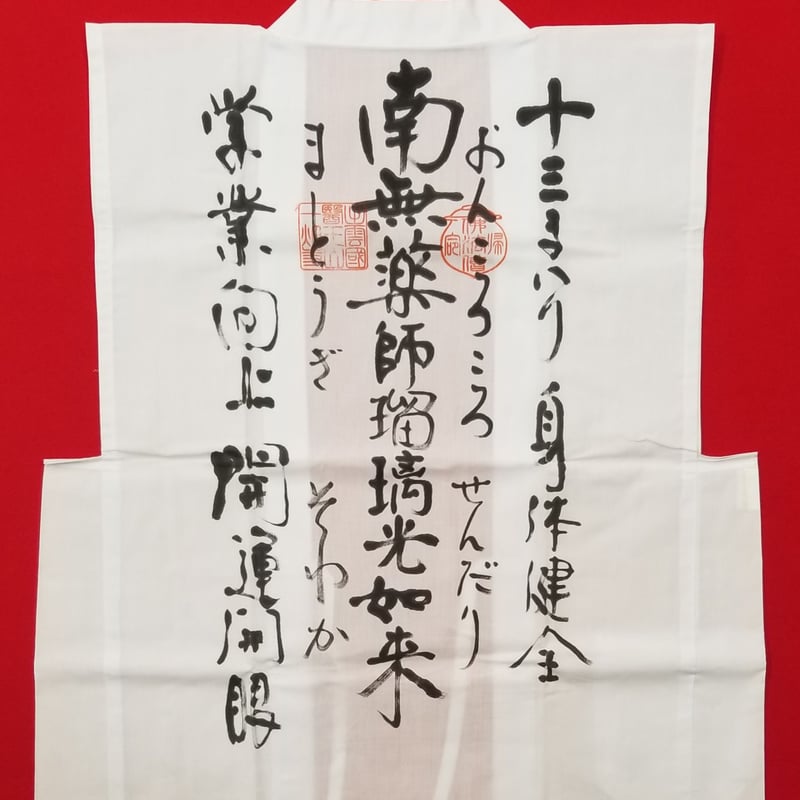 十三まいり 身体健全
おんころころ せんだり
南無薬師瑠璃光如来
まーとうぎ そわか
学業向上 開運開眼
出雲國
醫王山